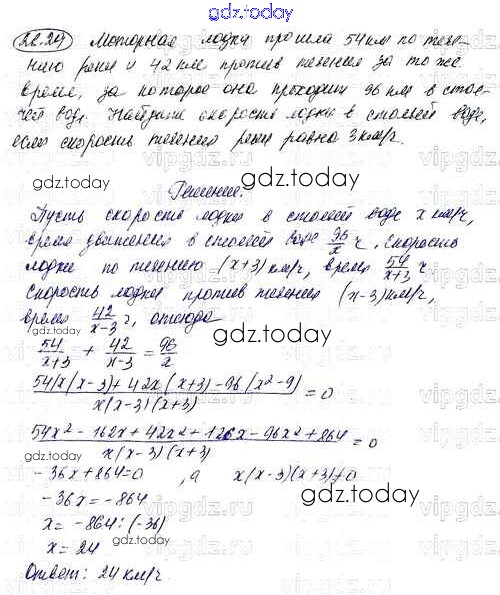 gdz.today
22.24 Моторная лодка прошла 54 км по тече-
нию реки и 42 км против течения за то же
время, за которое она проходит 96 км в стоя-
чей воде. Найдите скорость лодки в стоячей воде,
если скорость течения реки равна 3 км/ч.
gdz.today
Решение.
Пусть скорость лодки в стоячей воде x км/ч,
время движения в стоячей воде 96/x ч, скорость
лодки по течению (x+3) км/ч, время 54/x+3 ч
скорость лодки против течения (x-3) км/ч,
время 42/x-3 ч, отсюда
gdz.today
54/x+3 + 42/x-3 = 96/x
54(x(x-3)+42x(x+3)-96(x²-9)/x(x-3)(x+3) = 0
54x²-162x+42x²+126x-96x²+864/x(x-3)(x+3) = 0
-36x+864=0, а x(x-3)(x+3)≠0
-36x=-864
x=-864:(-36)
x=24
Ответ: 24 км/ч.
gdz.today
vipgdz.today